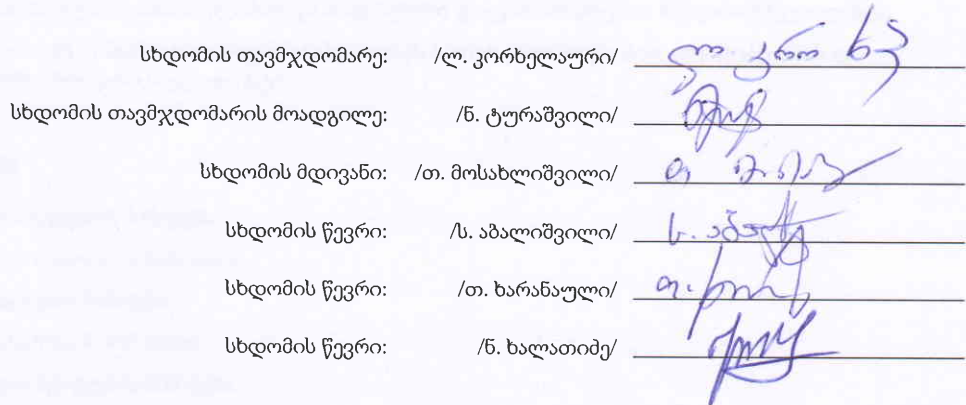 სხდომის თავმჯდომარე: /ლ. კორხელაური/
სხდომის თავმჯდომარის მოადგილე: /ნ. ტურაშვილი/
სხდომის მდივანი: /თ. მოსახლიშვილი/
სხდომის წევრი: /ს. აბალიშვილი/
სხდომის წევრი: /თ. ხარანაული/
სხდომის წევრი: /ნ. ხალათიძე/